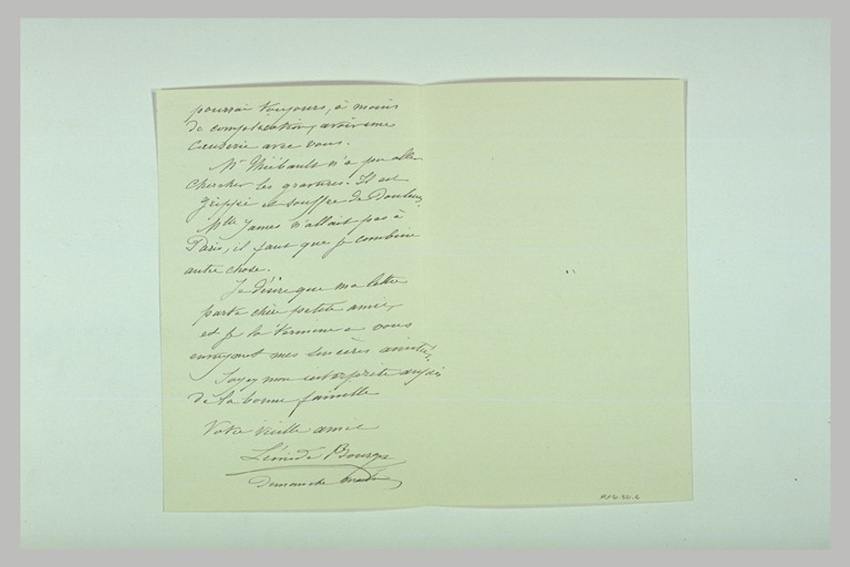 pourrai toujours, à moins
de complication, avoir une
Causerie avec vous.
Mr Thiébault n'a pu aller
chercher les gravures. Il est
grippé et souffre de Douleurs
Mlle James n'allait pas à
Paris, il faut que je combine
autre chose.
Je désire que ma lettre
parte chère petite amie,
et je la termine en vous
envoyant mes sincères amitiés.
Soyez mon interprète auprès
de la bonne famille
Votre vieille amie
Léonide Bourges
Demanche